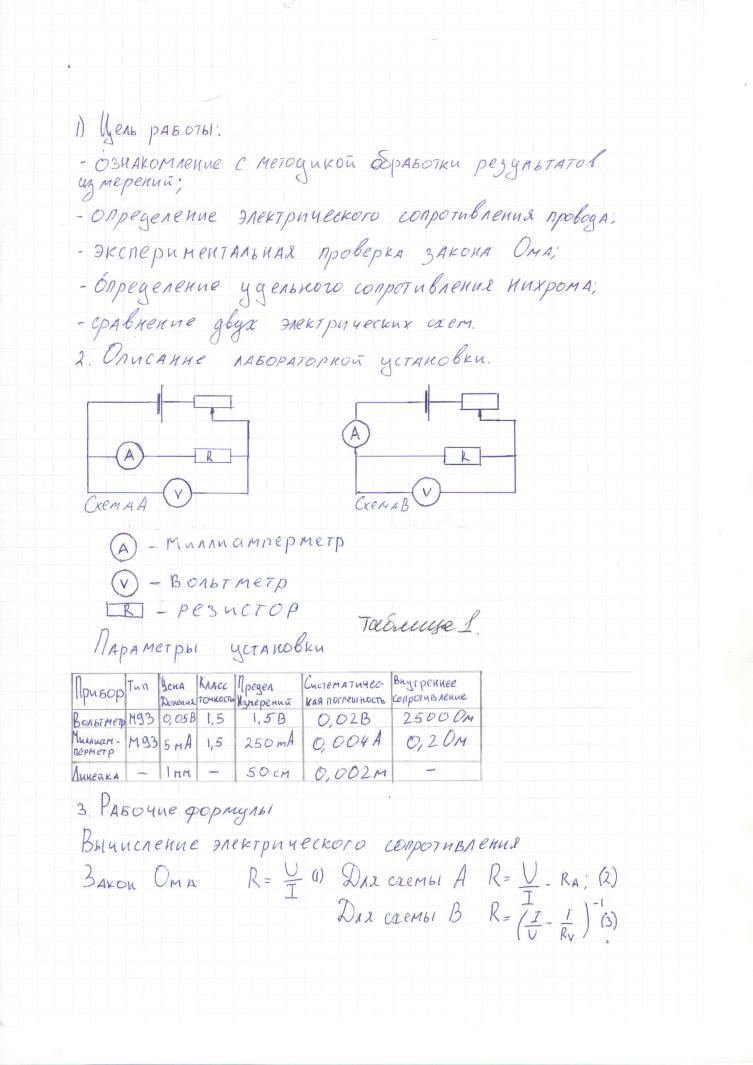 1) Цель работы:
- ознакомление с методикой обработки результатов
измерений;
- определение электрического сопротивления провода;
- экспериментальная проверка закона Ома;
- определение удельного сопротивления нихрома;
- сравнение двух электрических схем.
2. Описание лабораторной установки.
A R V
Схема А
A R V
Схема В
A - Миллиамперметр
V - Вольтметр
R - резистор
Таблица 1.
Параметры установки
Прибор Тип Цена Деления Класс точности Предел Измерений Систематичес-кая погрешность Внутреннее сопротивление
Вольтметр М93 0,05В 1,5 1,5В 0,02В 2500Ом
Миллиам-перметр М93 5мА 1,5 250mA 0,004А 0,2Ом
Линейка - 1мм - 50см 0,002м -
3. Рабочие формулы
Вычисление электрического сопротивления
Закон Ома R = U/I (1) Для схемы А R = U/I - RA; (2)
Для схемы В R = (I/U - 1/RV)^-1 (3)